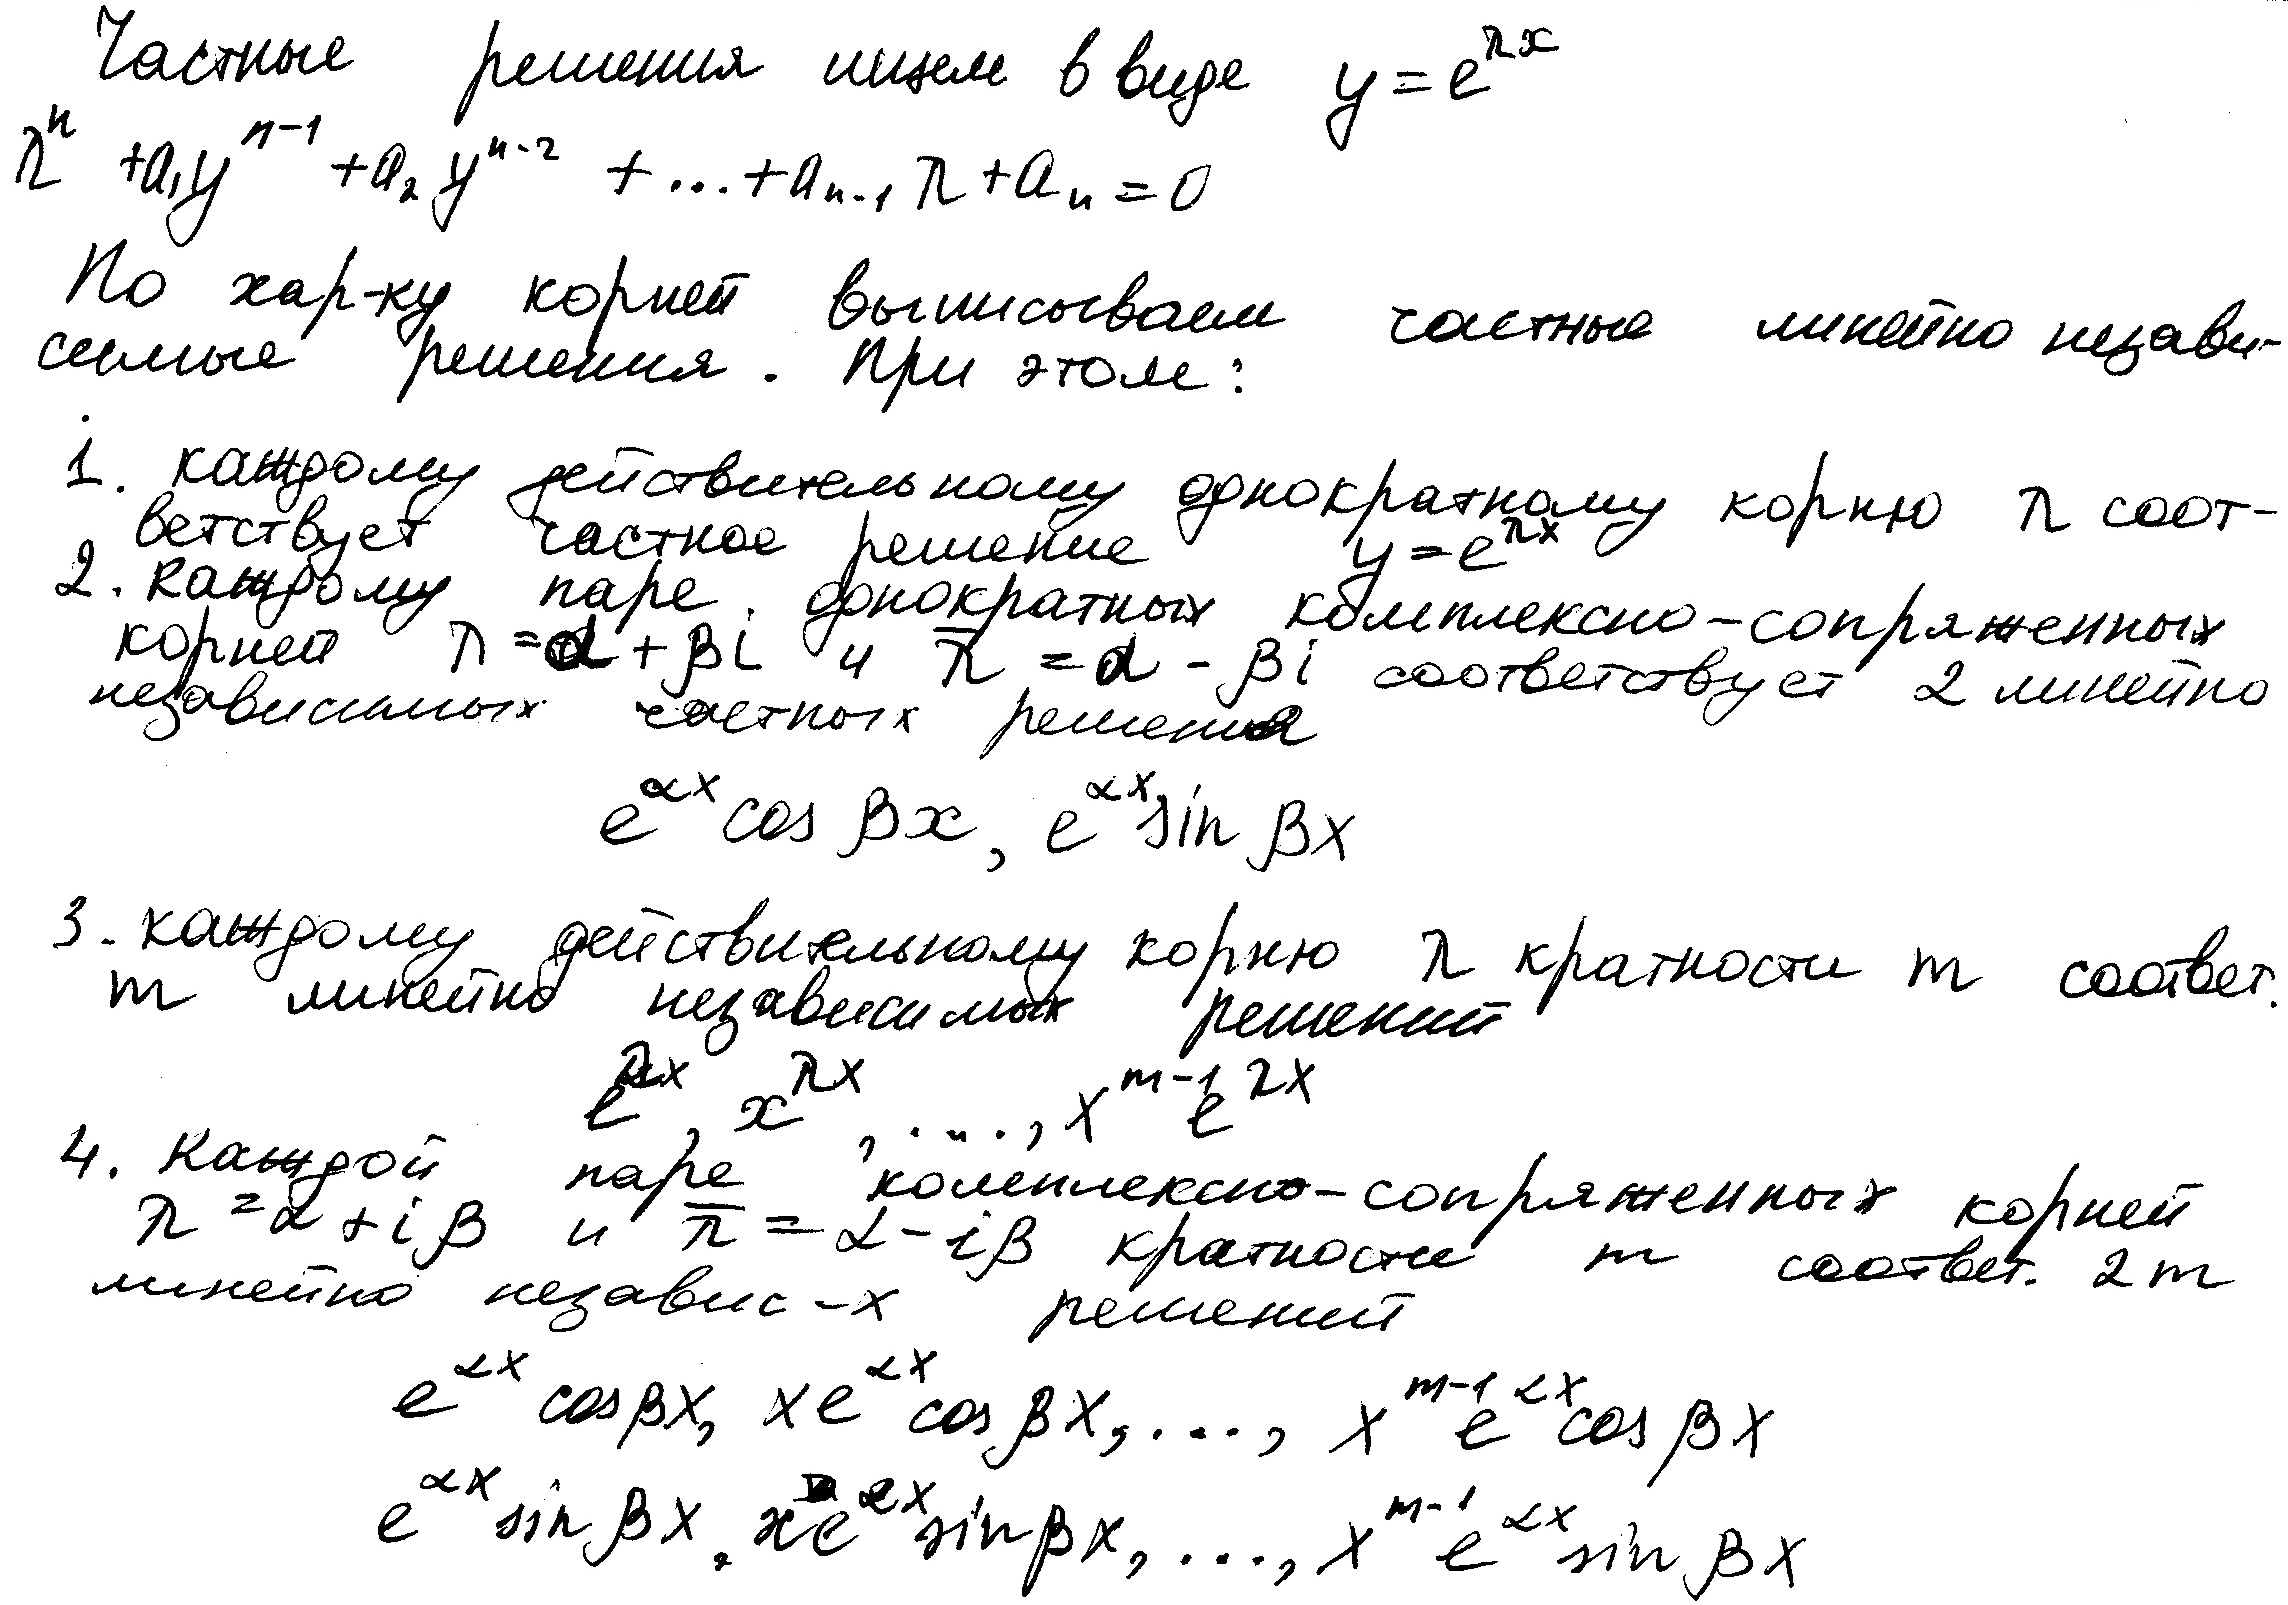 Частные решения ищем в виде y = e^{λx}
λ^n + a_1 y^{n-1} + a_2 y^{n-2} + ... + a_{n-1} λ + a_n = 0
По хар-ку корней выписываем частные линейно незави-
симые решения. При этом:
1. каждому действительному однократному корню λ соот-
ветствует частное решение y = e^{λx}
2. каждому паре однократных комплексно-сопряженных
корней λ = α + βi и λ̄ = α - βi соответствует 2 линейно
независимых частных решения
e^{αx} cos βx, e^{αx} sin βx
3. каждому действительному корню λ кратности m соответ.
m линейно независимых решений
e^{λx}, x^{λx}, ..., x^{m-1} e^{λx}
4. Каждой паре комплексно-сопряженных корней
λ = α + iβ и λ̄ = α - iβ кратности m соответ. 2m
линейно независ-х решений
e^{αx} cos βx, x e^{αx} cos βx, ..., x^{m-1} e^{αx} cos βx
e^{αx} sin βx, x e^{αx} sin βx, ..., x^{m-1} e^{αx} sin βx